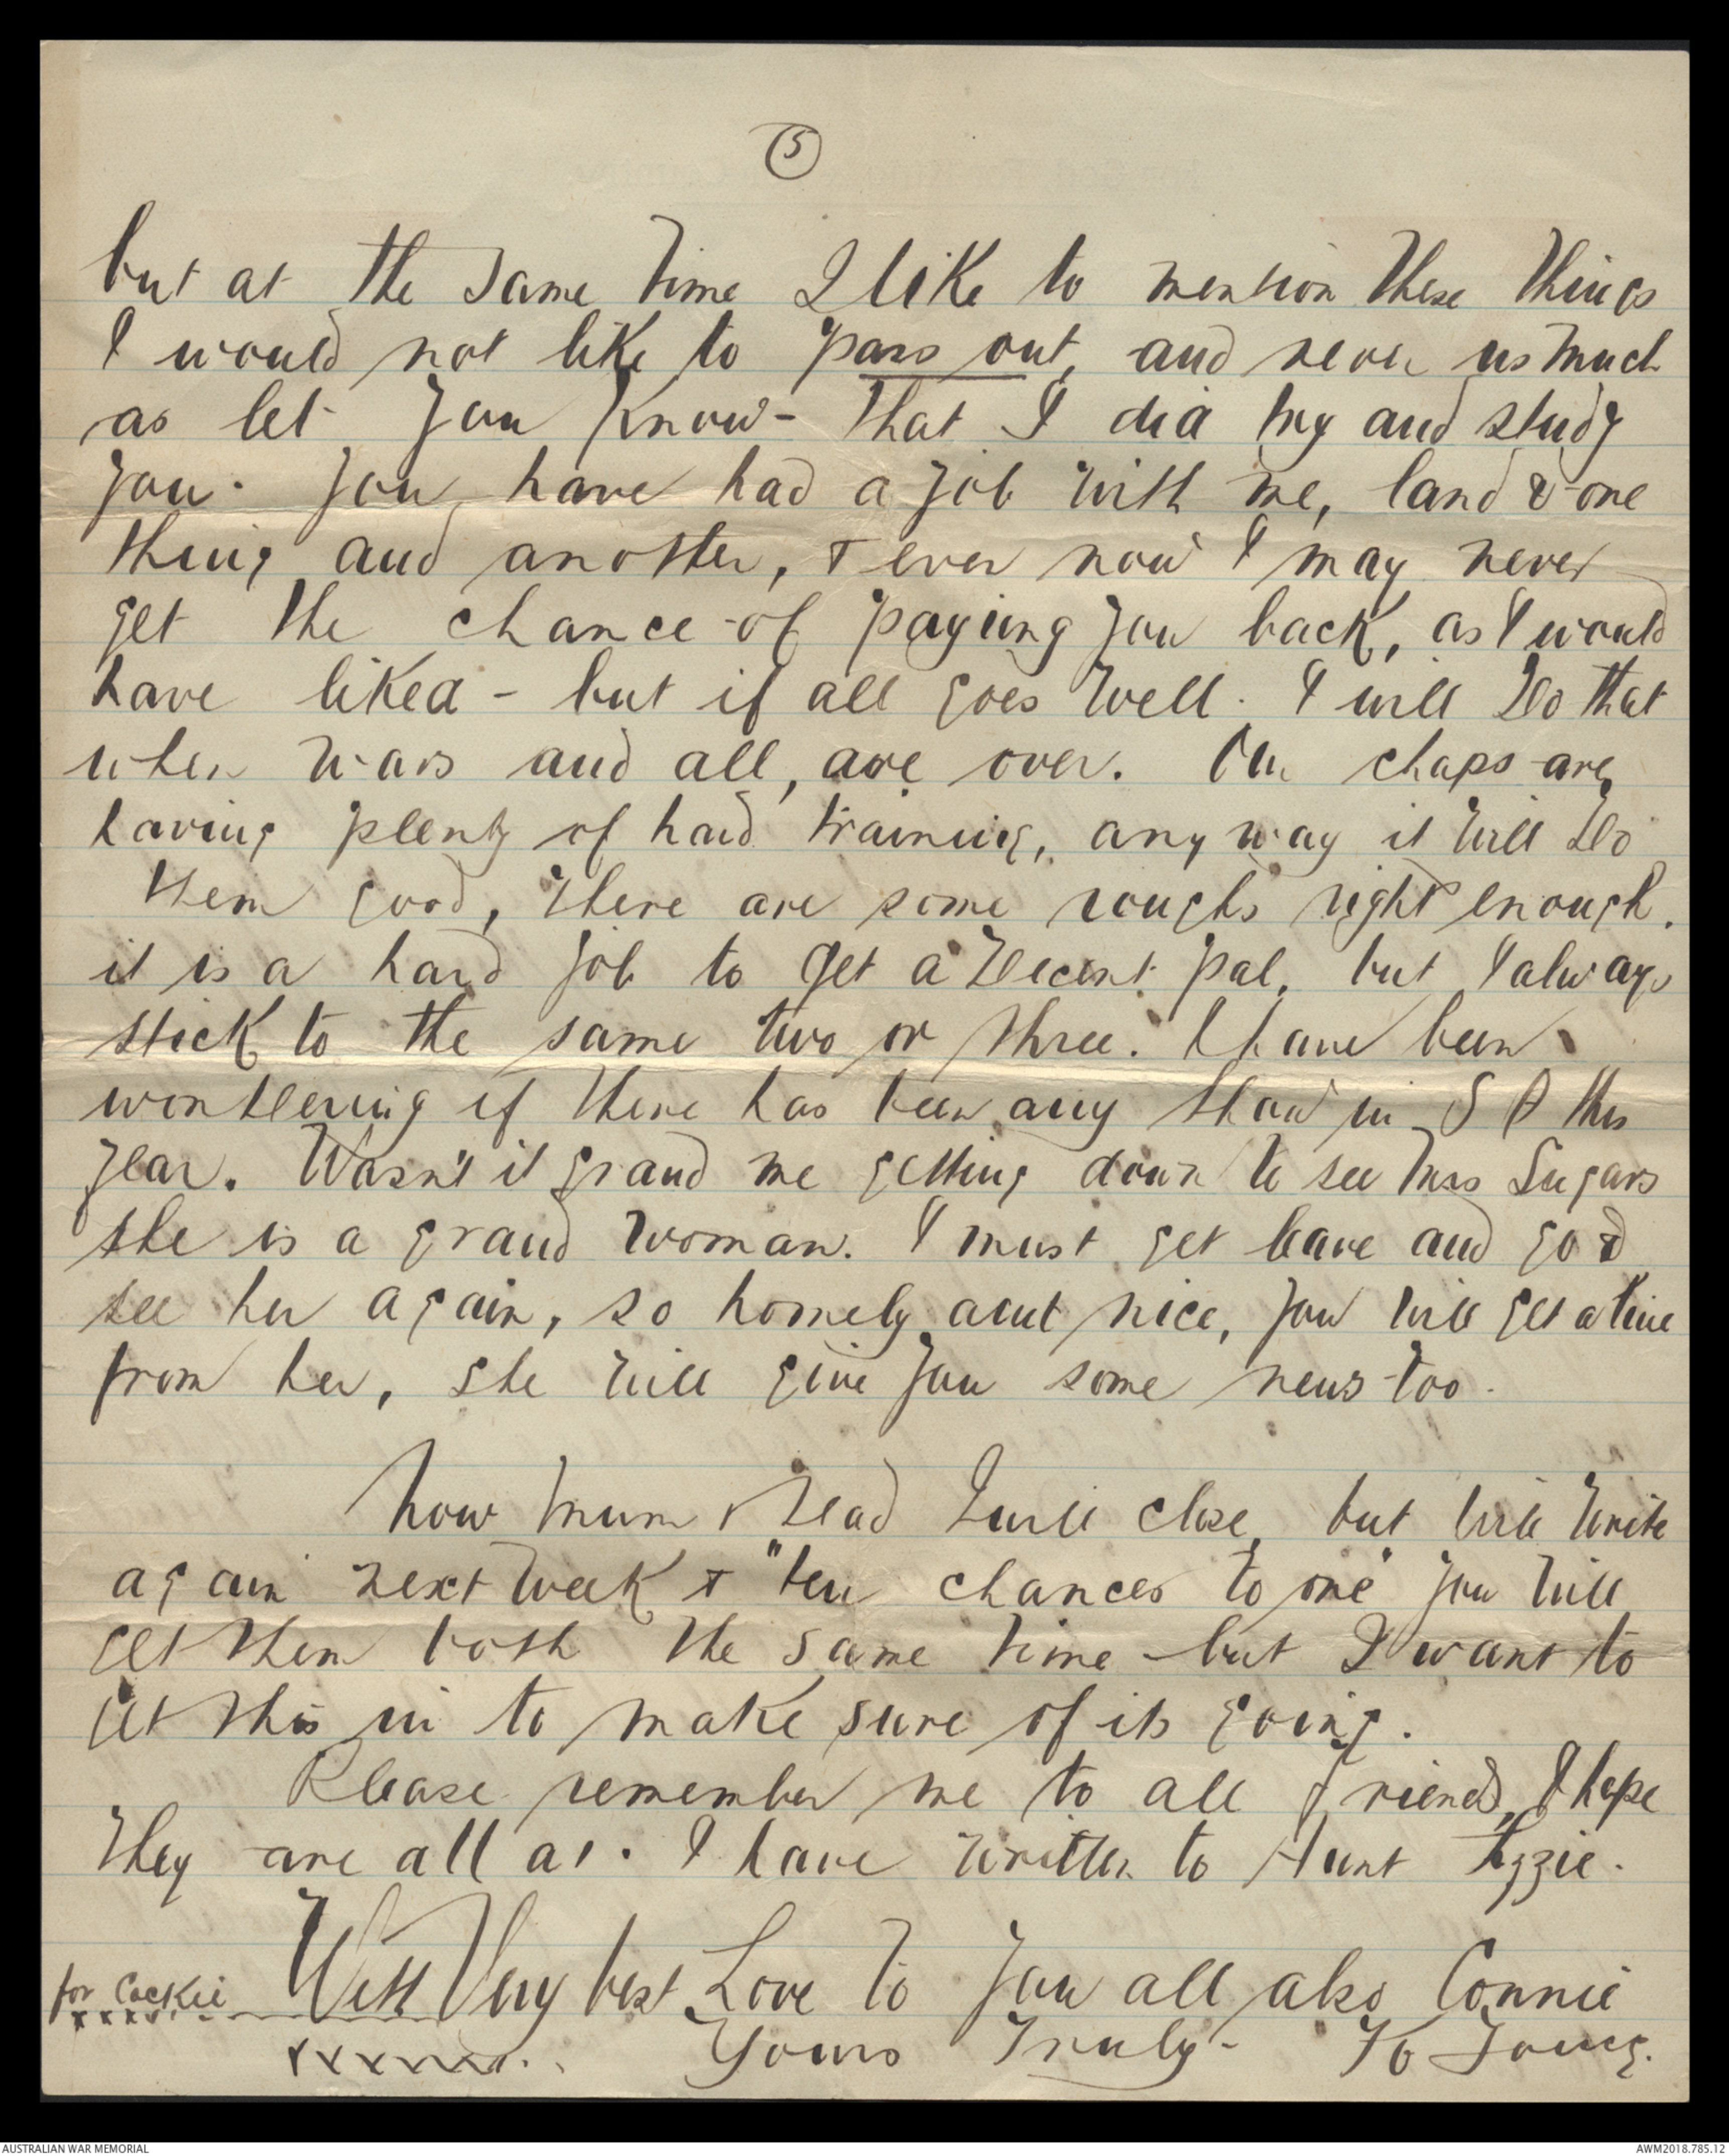 5
but at the same time I like to mention these things
I would not like to pass out, and never as much
as let you know - that I did try and study
you. You have had a job with me, land & one
thing and another, & even now I may never
get the chance of paying you back, as I would
have liked - but if all goes well. I will do that
when wars and all, are over. Our chaps are
having plenty of hard training, any way it will do
them good, there are some roughs right enough.
it is a hard job to get a decent pal, but I always
stick to the same two or three. I have been
wondering if there has been any show in S A this
year. Wasn't it grand me getting down to see Mrs Sugars
she is a grand woman. I must get leave and go &
see her again, so homely and nice, you will get a line
from her, she will give you some news too.
Now Mum & Dad I will close, but will write
again next week & "ten chances to one" you will
get them both the same time - but I want to
get this in to make sure of its going.
Please remember me to all friends, I hope
they are all a1. I have written to Aunt Lizzie.
With Very best Love to you all also Connie
for Cockie
xxxxx
xxxxxx
Yours Truly - Young.
AUSTRALIAN WAR MEMORIAL
AWM2018.785.12